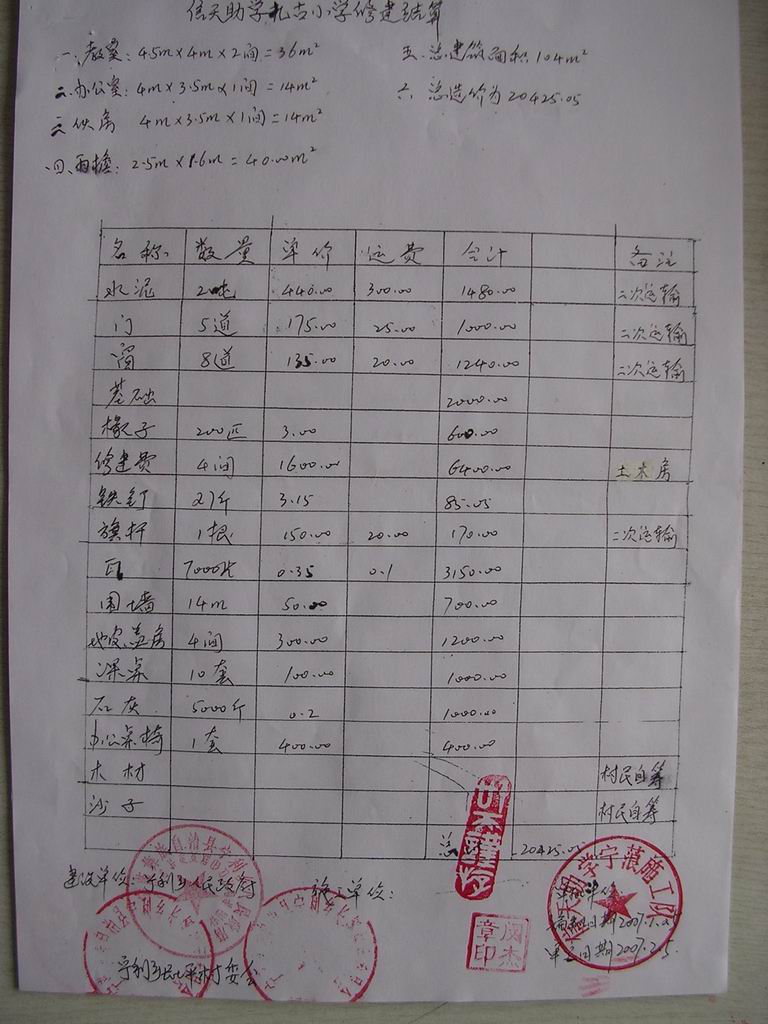 信天助学扎古小学修建结算
一、教室: 4.5m×4m×2间=36m²
五、总建筑面积104m²
二、办公室: 4m×3.5m×1间=14m²
六、总造价为20425.05
三、伙房 4m×3.5m×1间=14m²
四、雨檐: 2.5m×1.6m=40.00m²
名称 数量 单价 运费 合计 备注
水泥 2吨 440.00 300.00 1480.00 二次运输
门 5道 175.00 25.00 1000.00 二次运输
窗 8道 135.00 20.00 1240.00 二次运输
基础 2000.00
椽子 200匹 3.00 600.00
修建费 4间 1600.00 6400.00 土木房
铁钉 27斤 3.15 85.05
旗杆 1根 150.00 20.00 170.00 二次运输
瓦 7000片 0.35 0.1 3150.00
围墙 14m 50.00 700.00
地皮盖房 4间 300.00 1200.00
课桌 10套 100.00 1000.00
石灰 5000斤 0.2 1000.00
办公桌椅 1套 400.00 400.00
木材 村民自筹
沙子 村民自筹
总 20425.05
建设单位: 宁利乡人民政府 施工单位:
学宁蒗施工队
日期2007.1.25
日期2007.2.5
章印
宁利乡 村委会